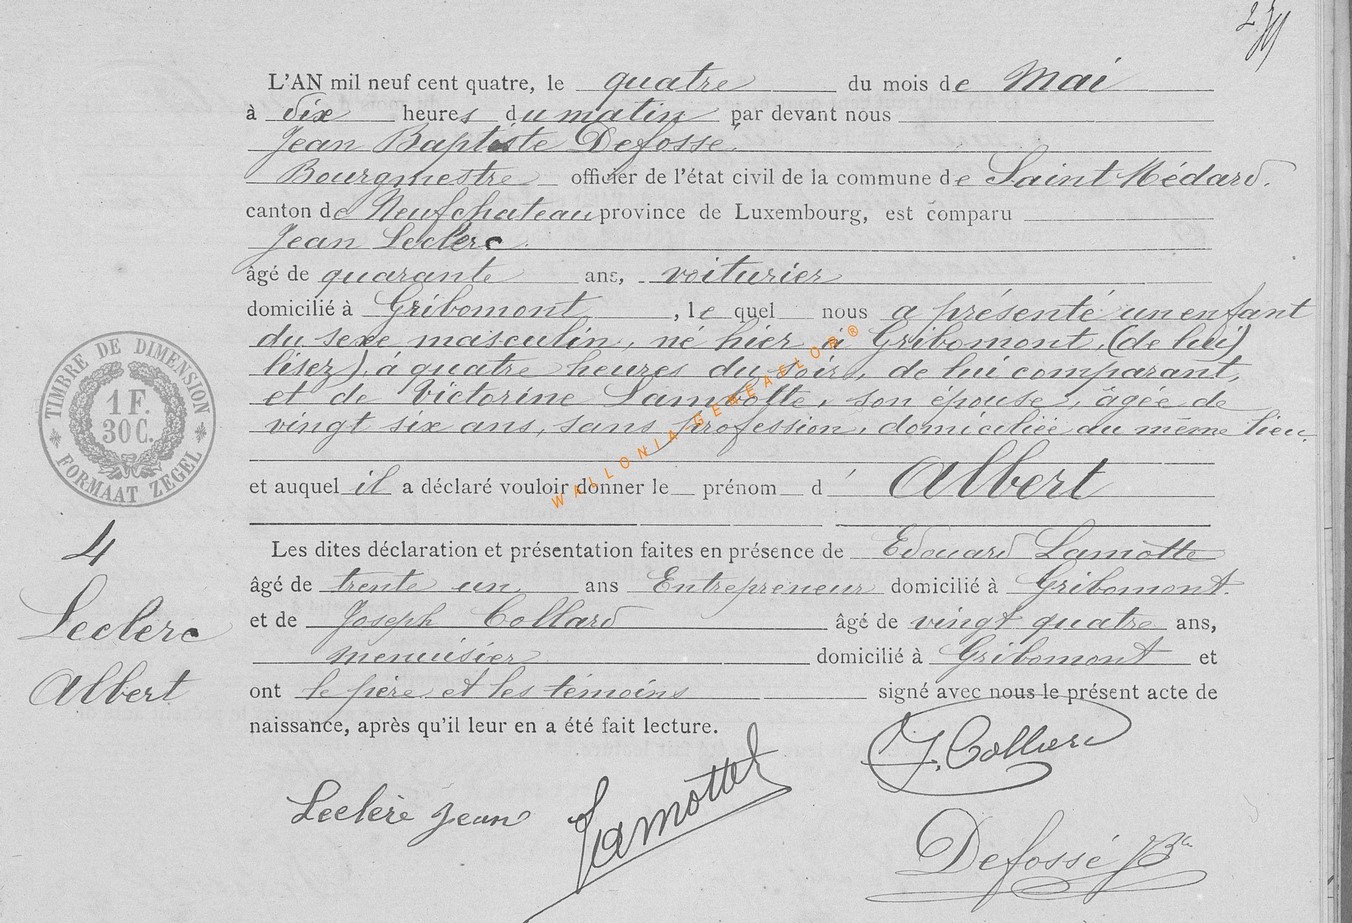 L'AN mil neuf cent quatre, le quatre du mois de Mai
à dix heures du matin par devant nous
Jean Baptiste Defossé
Bourgmestre officier de l'état civil de la commune de Saint Médard.
canton de Neufchateau province de Luxembourg, est comparu
Jean Leclerc
âgé de quarante ans, voiturier
domicilié à Gribomont, le quel nous a présenté un enfant
du sexe masculin, né hier à Gribomont, (de lui)
lisez), à quatre heures du soir, de lui comparant,
et de Victorine Lamotte, son épouse, âgée de
vingt six ans, sans profession, domiciliée au même lieu.
et auquel il a déclaré vouloir donner le prénom d' Albert
Les dites déclaration et présentation faites en présence de Edouard Lamotte
âgé de trente un ans Entrepreneur domicilié à Gribomont.
et de Joseph Collard âgé de vingt quatre ans,
menuisier domicilié à Gribomont et
ont le père et les témoins signé avec nous le présent acte de
naissance, après qu'il leur en a été fait lecture.
Leclère Jean
Lamotte
J. Collard
Defossé JBte
4
Leclerc
Albert
TIMBRE DE DIMENSION
1 F.
30 C.
FORMAAT ZEGEL
WALLONIA GENEAFLOR®